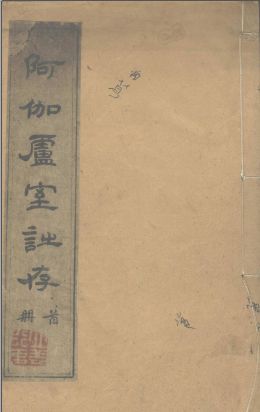 阿伽廬室詿存
首冊